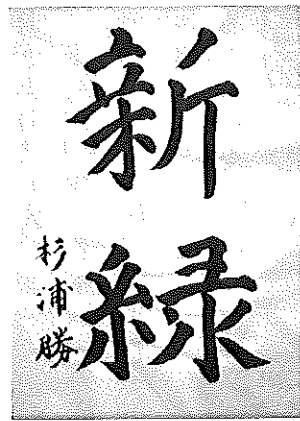 新緑
杉浦勝